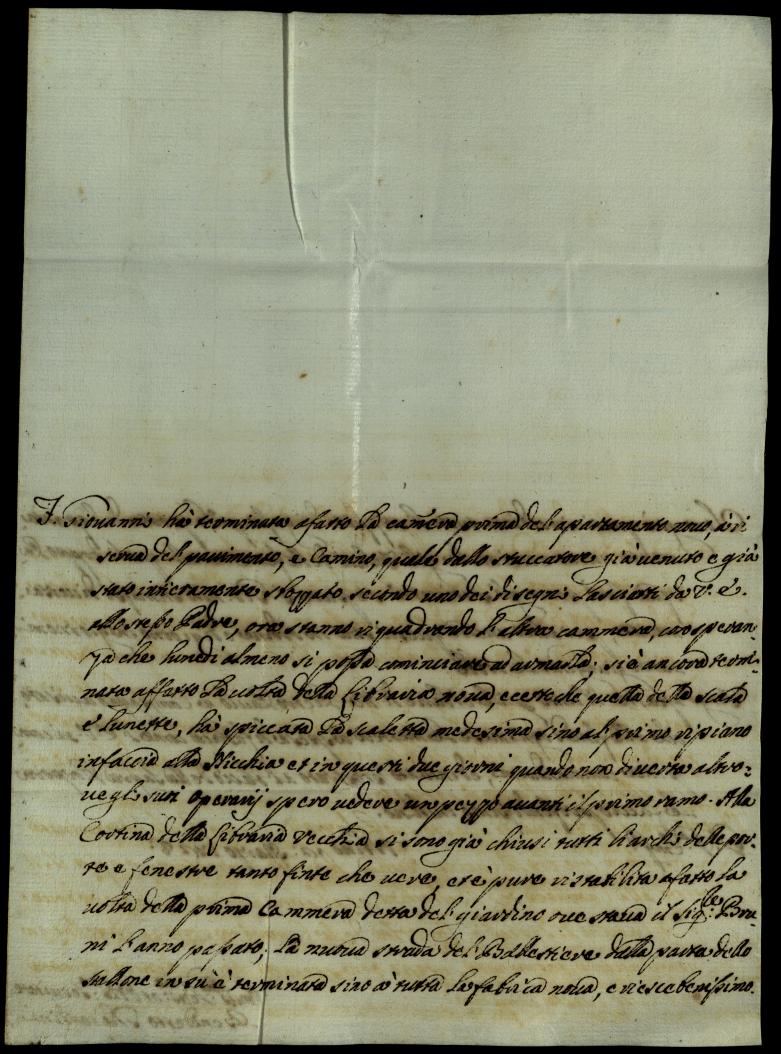 F. Giovanni hà terminata afatto la camera prima del apartamento novo, à ri
serva del pavimento, e Camino, quale dallo stuccatore già venuto e già
stato intieramente sbozzato secondo uno dei disegni lasciati da V. E.
allo stesso Padre, ora stanno riquadrando l'altra cammera, con speran-
za che lunedì almeno si possa cominciare ad armarla; si è ancora termi-
nata affatto la volta dela Libraria nova, eccetto che quella della scala
è lunette, hà spiccata la scaletta medesima sino al primo ripiano
infaccia alla Nicchia et in questi due giorni quando non diverta altro-
ve gli suoi operarij spero vedere un pezzo avanti il primo ramo. Alla
Cortina della Libraria Vecchia si sono già chiusi tutti li archi delle por-
te e fenestre tanto finte che vere, et è pure ristabilita afatto la
volta della prima Cammera detta del giardino ove stava il Sig.re Bru-
ni l'anno passato; La nuova strada del Ballestiere dalla parte dello
stallone in sù è terminata sino à tutta la fabrica nova, e riesce benissimo.